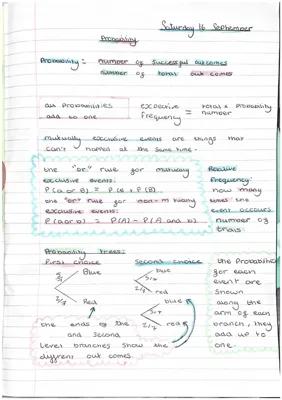 Saturday 16 September
Probability
Probability: number of successful outcomes
number of total out comes
all probabilities
add to one
expective
frequency = total x probability
number
mutually exclusive events are things that
can't happen at the same time.
the "or" rule for mutualy
exclusive events:
P(a or b) = P(a + P(B).
the "or" rule for non-mutualy
exculsive events:
P(a or b) = P(A) - P(A and b)
Relative
Frequency:
how many
times the
event occours
number of
trials
Probability trees:
First choice
Second choice
Blue
Red
blue
red
blue
red
the ends of the
and second
Level branches show the
diffrent out comes.
the Probabilities
for each
event are
shown
along the
arm of each
branch, they
add up to
one.